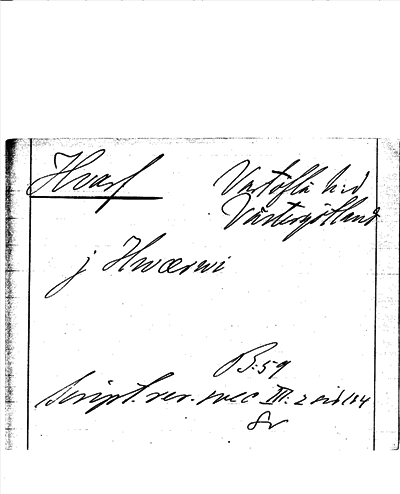 Hvarf
Vartofta h:d
Västergötland
j Hwærwi
B: 59
Script. rer. svec III: 2 sid 104
Sv